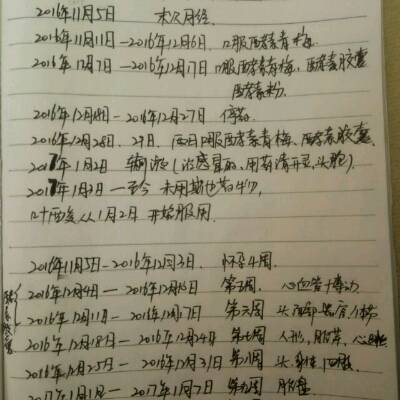 2016年11月5日 末次月经
2016年11月11日—2016年12月6日 口服酵素青梅
2016年12月7日—2016年12月17日 口服酵素青梅、酵素胶囊
酵素粉
2016年12月18日—2016年12月27日 停药
2016年12月28日、29日、两日口服酵素青梅、酵素胶囊
2017年1月2日 输液(治感冒的,用药清开灵,头孢)
2017年1月3日—至今 未用其他药物,
叶酸从1月2日开始服用.
2016年11月5日—2016年12月3日. 怀孕4周.
2016年12月4日—2016年12月10日 第五周. 心血管
2016年12月11日—2016年12月17日 第六周 头
2016年12月18日—2016年12月24日 第七周 人形,
2016年12月25日—2016年12月31日 第八周 头、身体、四肢
2017年1月1日—2017年1月7日 第九周 胎盘